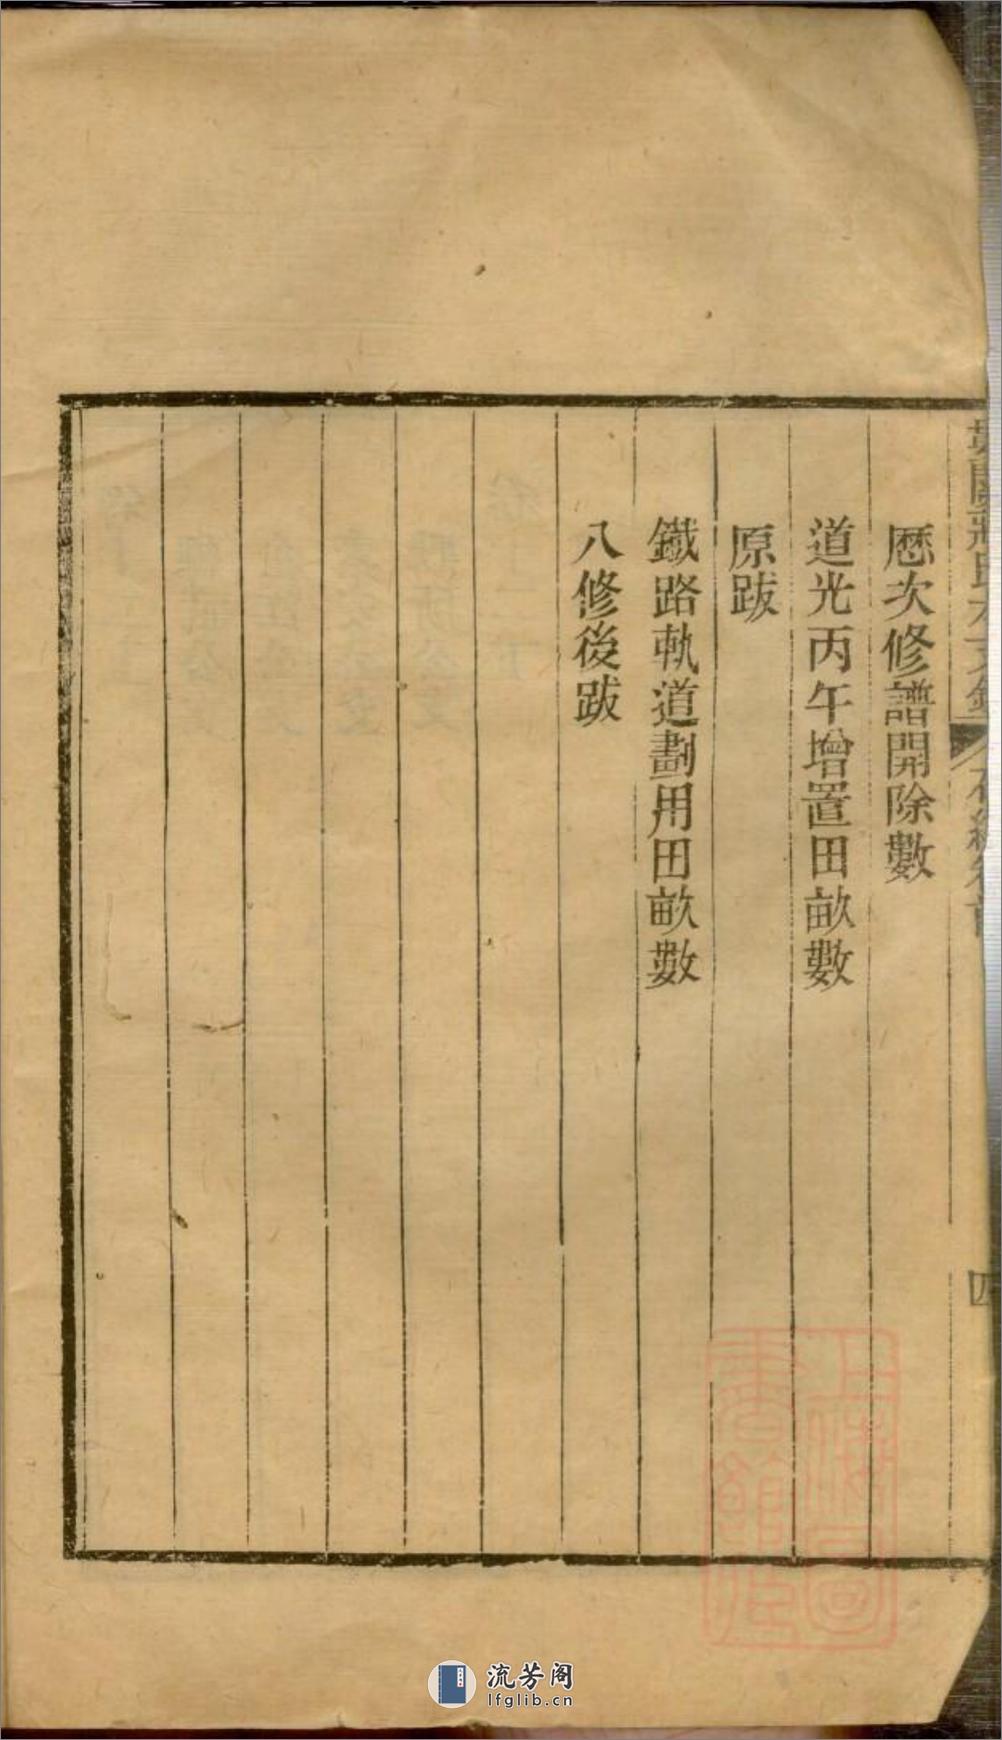 歷次修譜開除數
道光丙午增置田畝數
原跋
鐵路軌道劃用田畝數
八修後跋
四
上海圖
書館藏
流芳阁
lfglib.cn